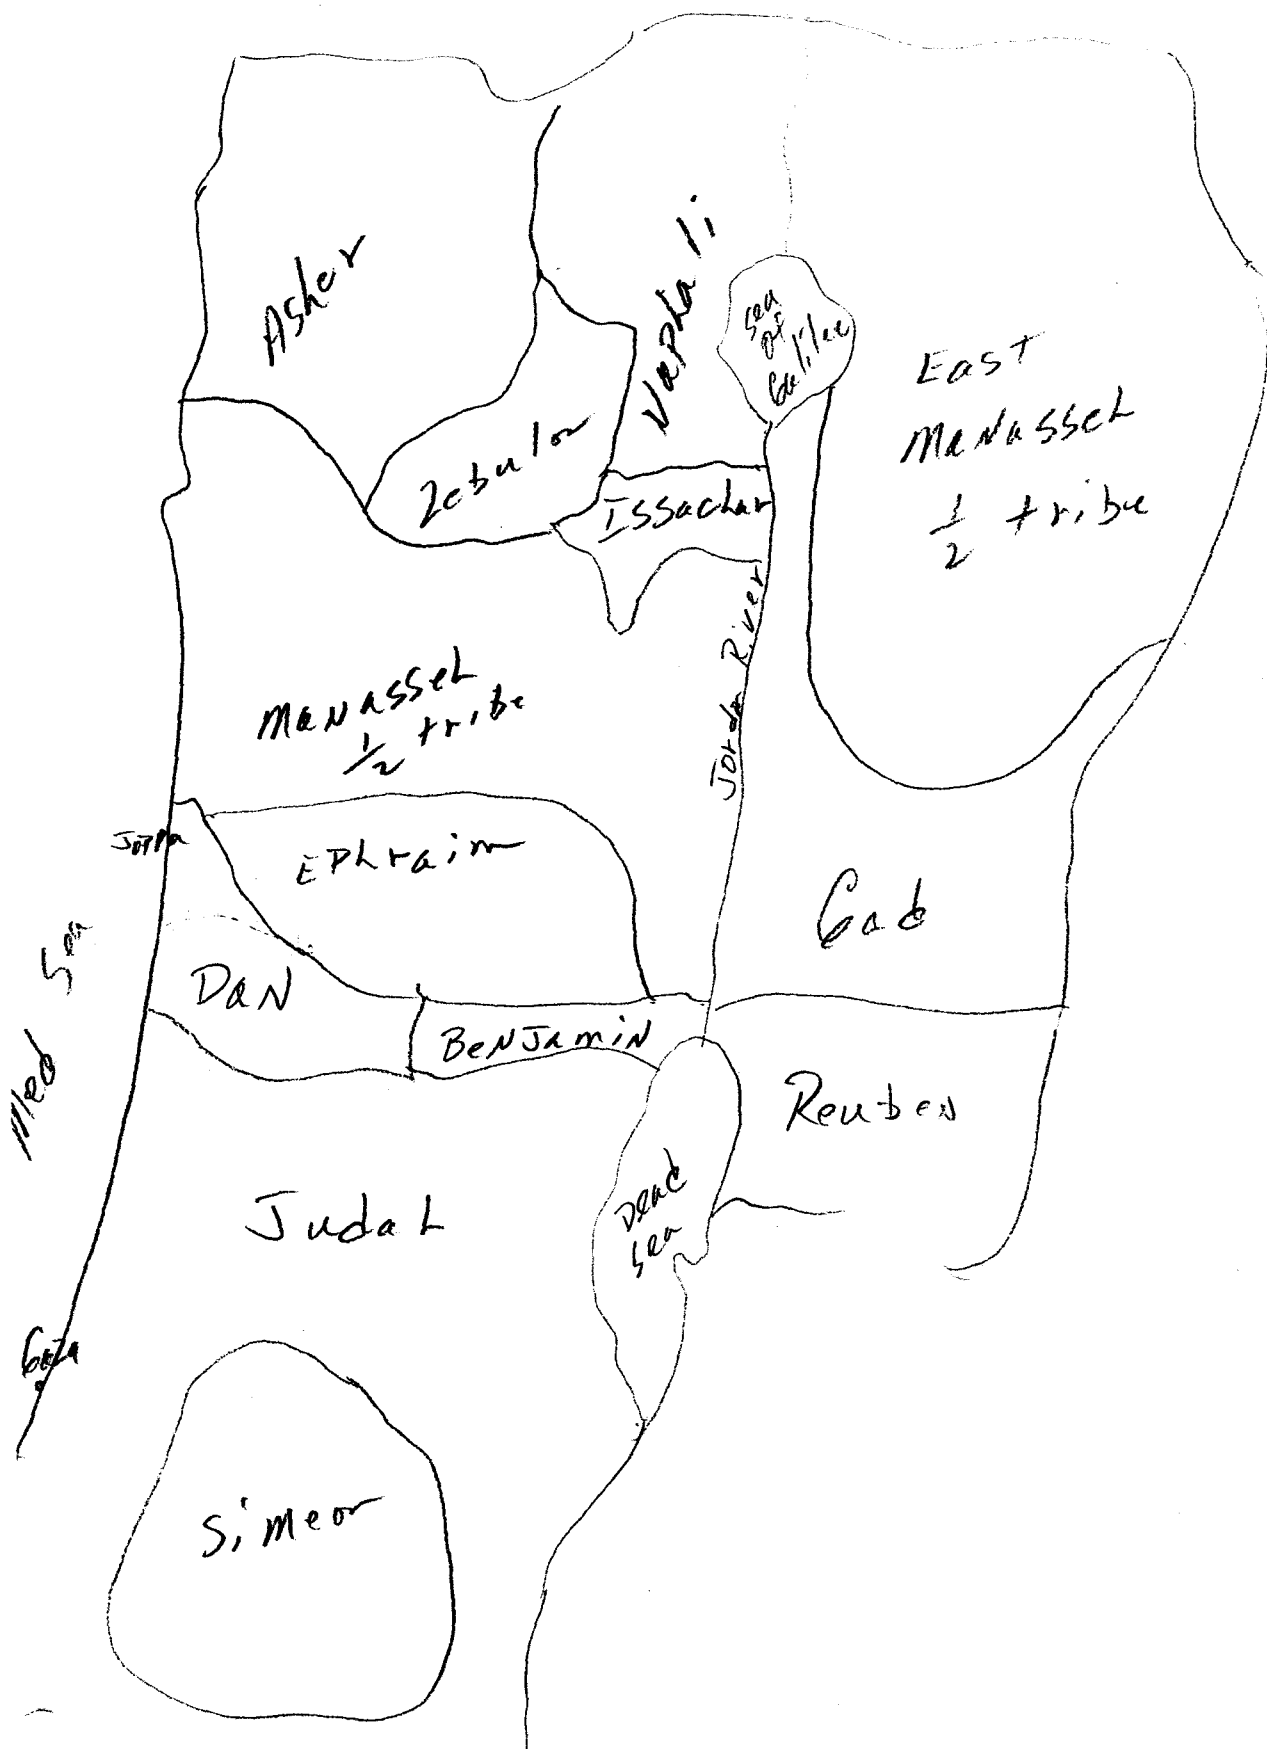 Asher
Naphali
Sea
of
Galilee
East
Manasseh
1/2 tribe
Zebulon
Issachar
Jordan River
Manasseh
1/2 tribe
Joppa
Ephraim
Gad
Med Sea
Dan
Benjamin
Reuben
Judah
Dead
Sea
Gaza
Simeon